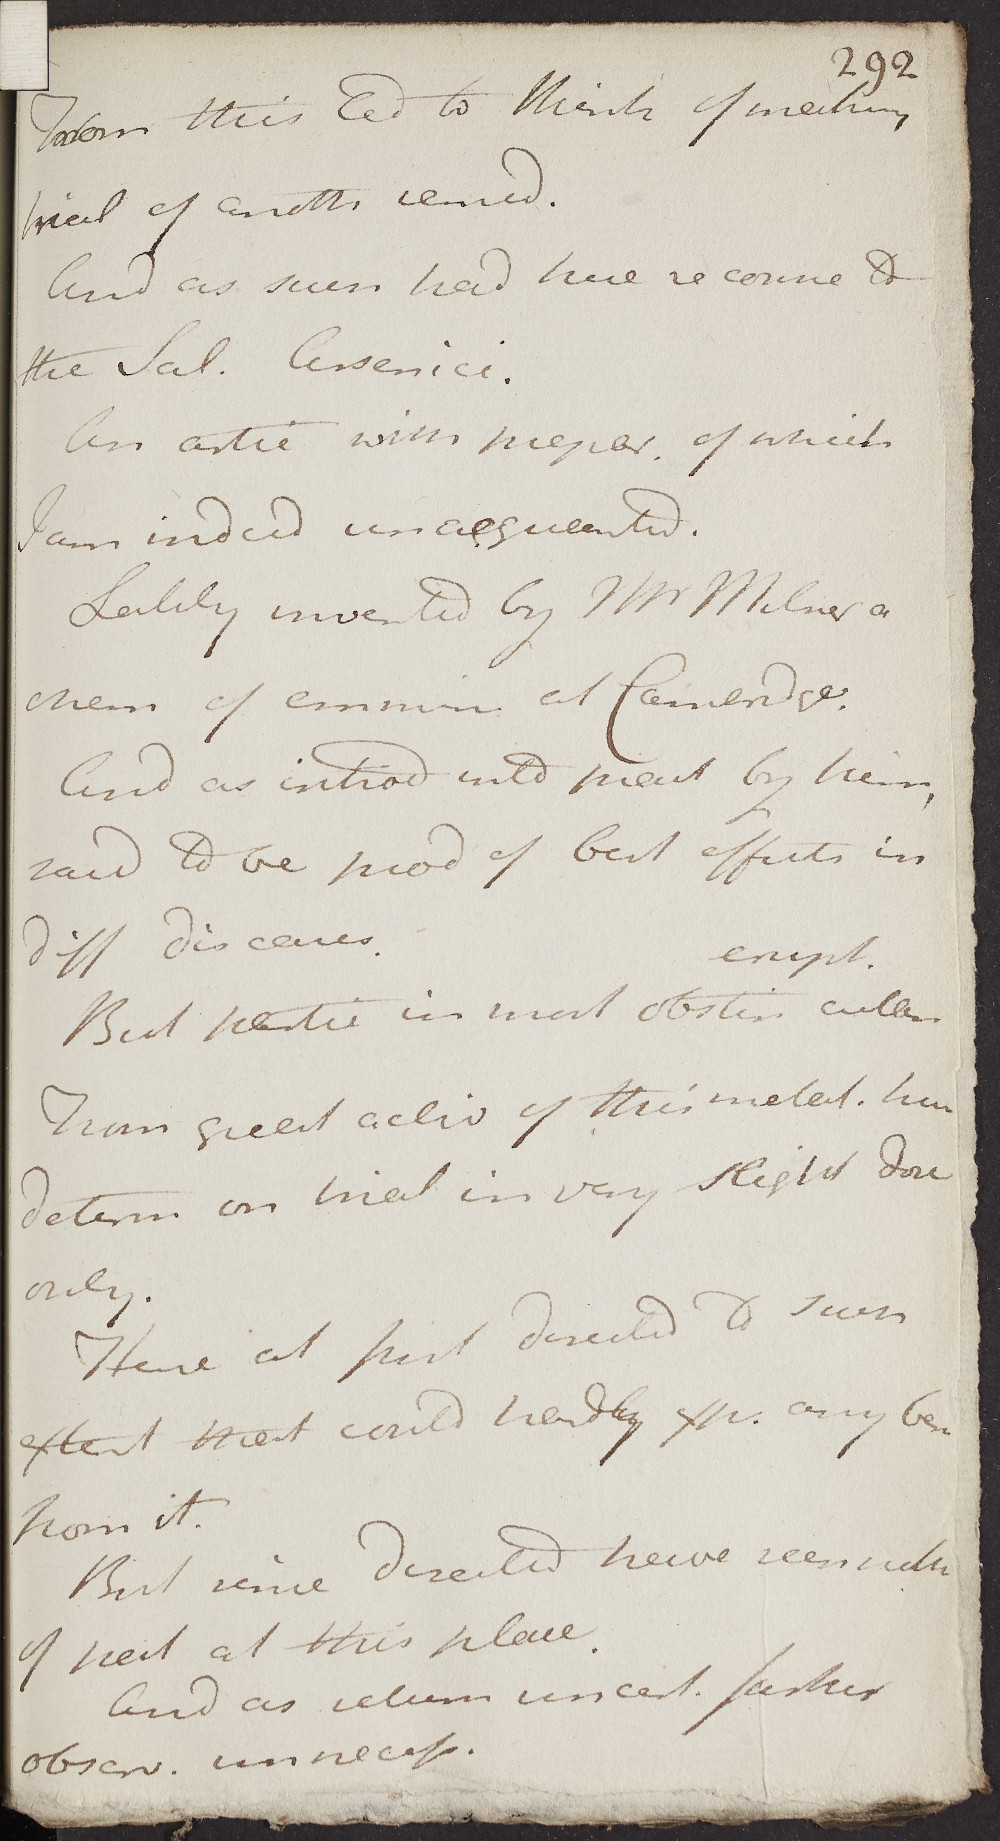 292
From this led to think of making
trial of anothr remed.
And as such had here recourse to
the Sal. Arsenici.
An artic with prepar. of which
I am indeed unacquainted.
Lately invented by Mr Milner a
chem of eminen at Cambridge.
And as introd into pract by him,
said to be prod of best effects in
diff diseases.
erupt.
But partic in most obstin cutan
From great activ of this metal. hav
determ on trial in very slight dose
only.
Have at first directed to such
extent that could hardly exp. any ben
from it.
But since directed have seen nothi
of pat at this place.
And as return uncert. farther
observ. unnecess.